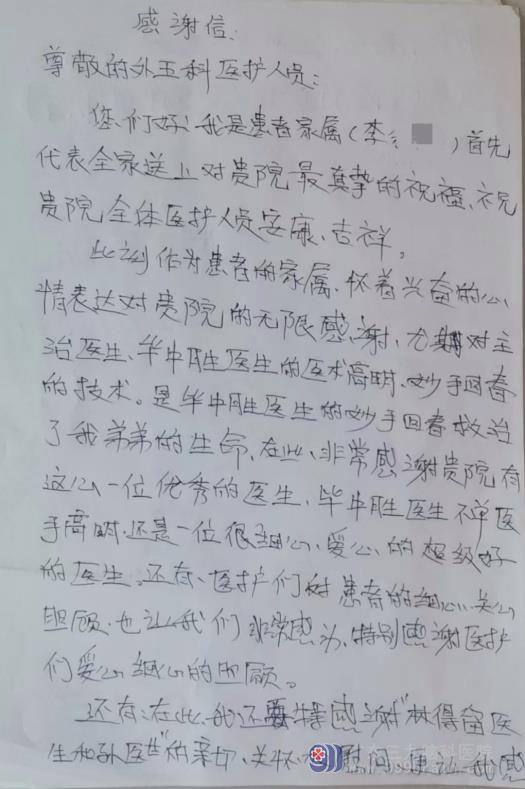 感谢信:
尊敬的外五科医护人员:
您们好!我是患者家属(李 )首先
代表全家送上对贵院最真挚的祝福、祝
贵院全体医护人员安康、吉祥,
此刻作为患者的家属、怀着兴奋的心
情表达对贵院的无限感谢、尤其对主
治医生、毕中胜医生的医术高明、妙手回春
的技术。是毕中胜医生的妙手回春救治
了我弟弟的生命、在此、非常感谢贵院有
这么一位优秀的医生、毕中胜医生不单医
手高明、还是一位很细心、爱心的超级好
的医生。还有、医护们对患者的细心、关心
照顾、也让我们非常感动、特别感谢医护
们爱心细心的照顾。
还有:在此、我还要特感谢"林得留医
生和孙医生"的亲切、关怀 慰问 更让我感